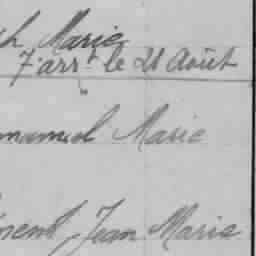 h Marie
7 arrt le 21 Août
mmanuel Marie
Jean Marie